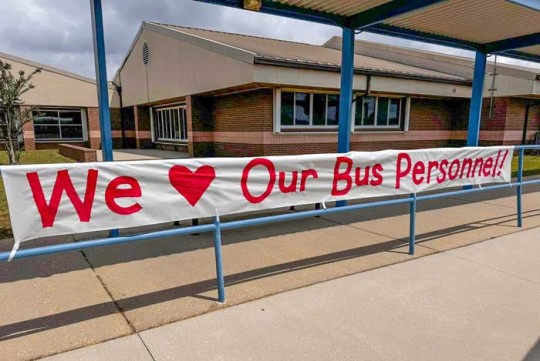 We ♥ Our Bus Personnel!